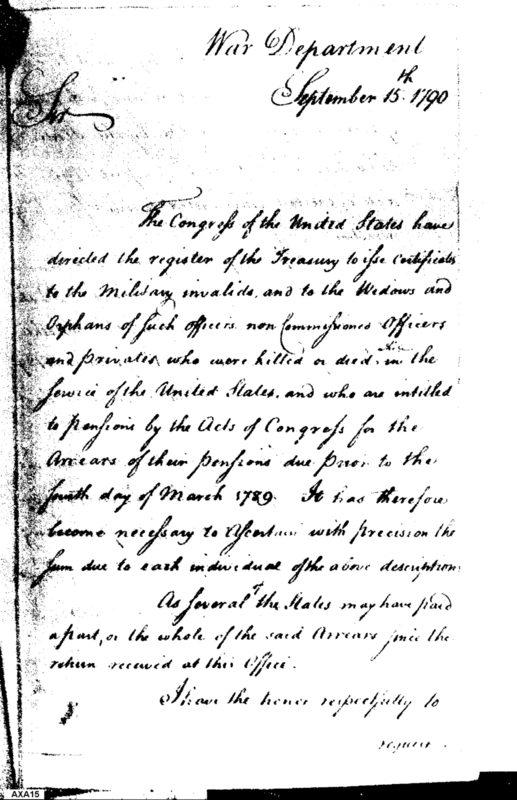 War Department
September 15th 1790
Sir
The Congress of the United States have
directed the register of the Treasury to isse Certificates
to the Military invalids, and to the Widows and
Orphans of such officers non Commissioned Officers
and privates who were killed or died in the
Service of the United States, and who are intitled
to pensions by the Acts of Congress for the
Arrears of their pensions due prior to the
fourth day of March 1789. It has therefore
become necessary to Ascertain with precision the
sum due to each individual of the above description.
As several of the States may have paid
a part, or the whole of the said Arrears since the
return received at this Office.
I have the honor respectfully to
request
AXA15